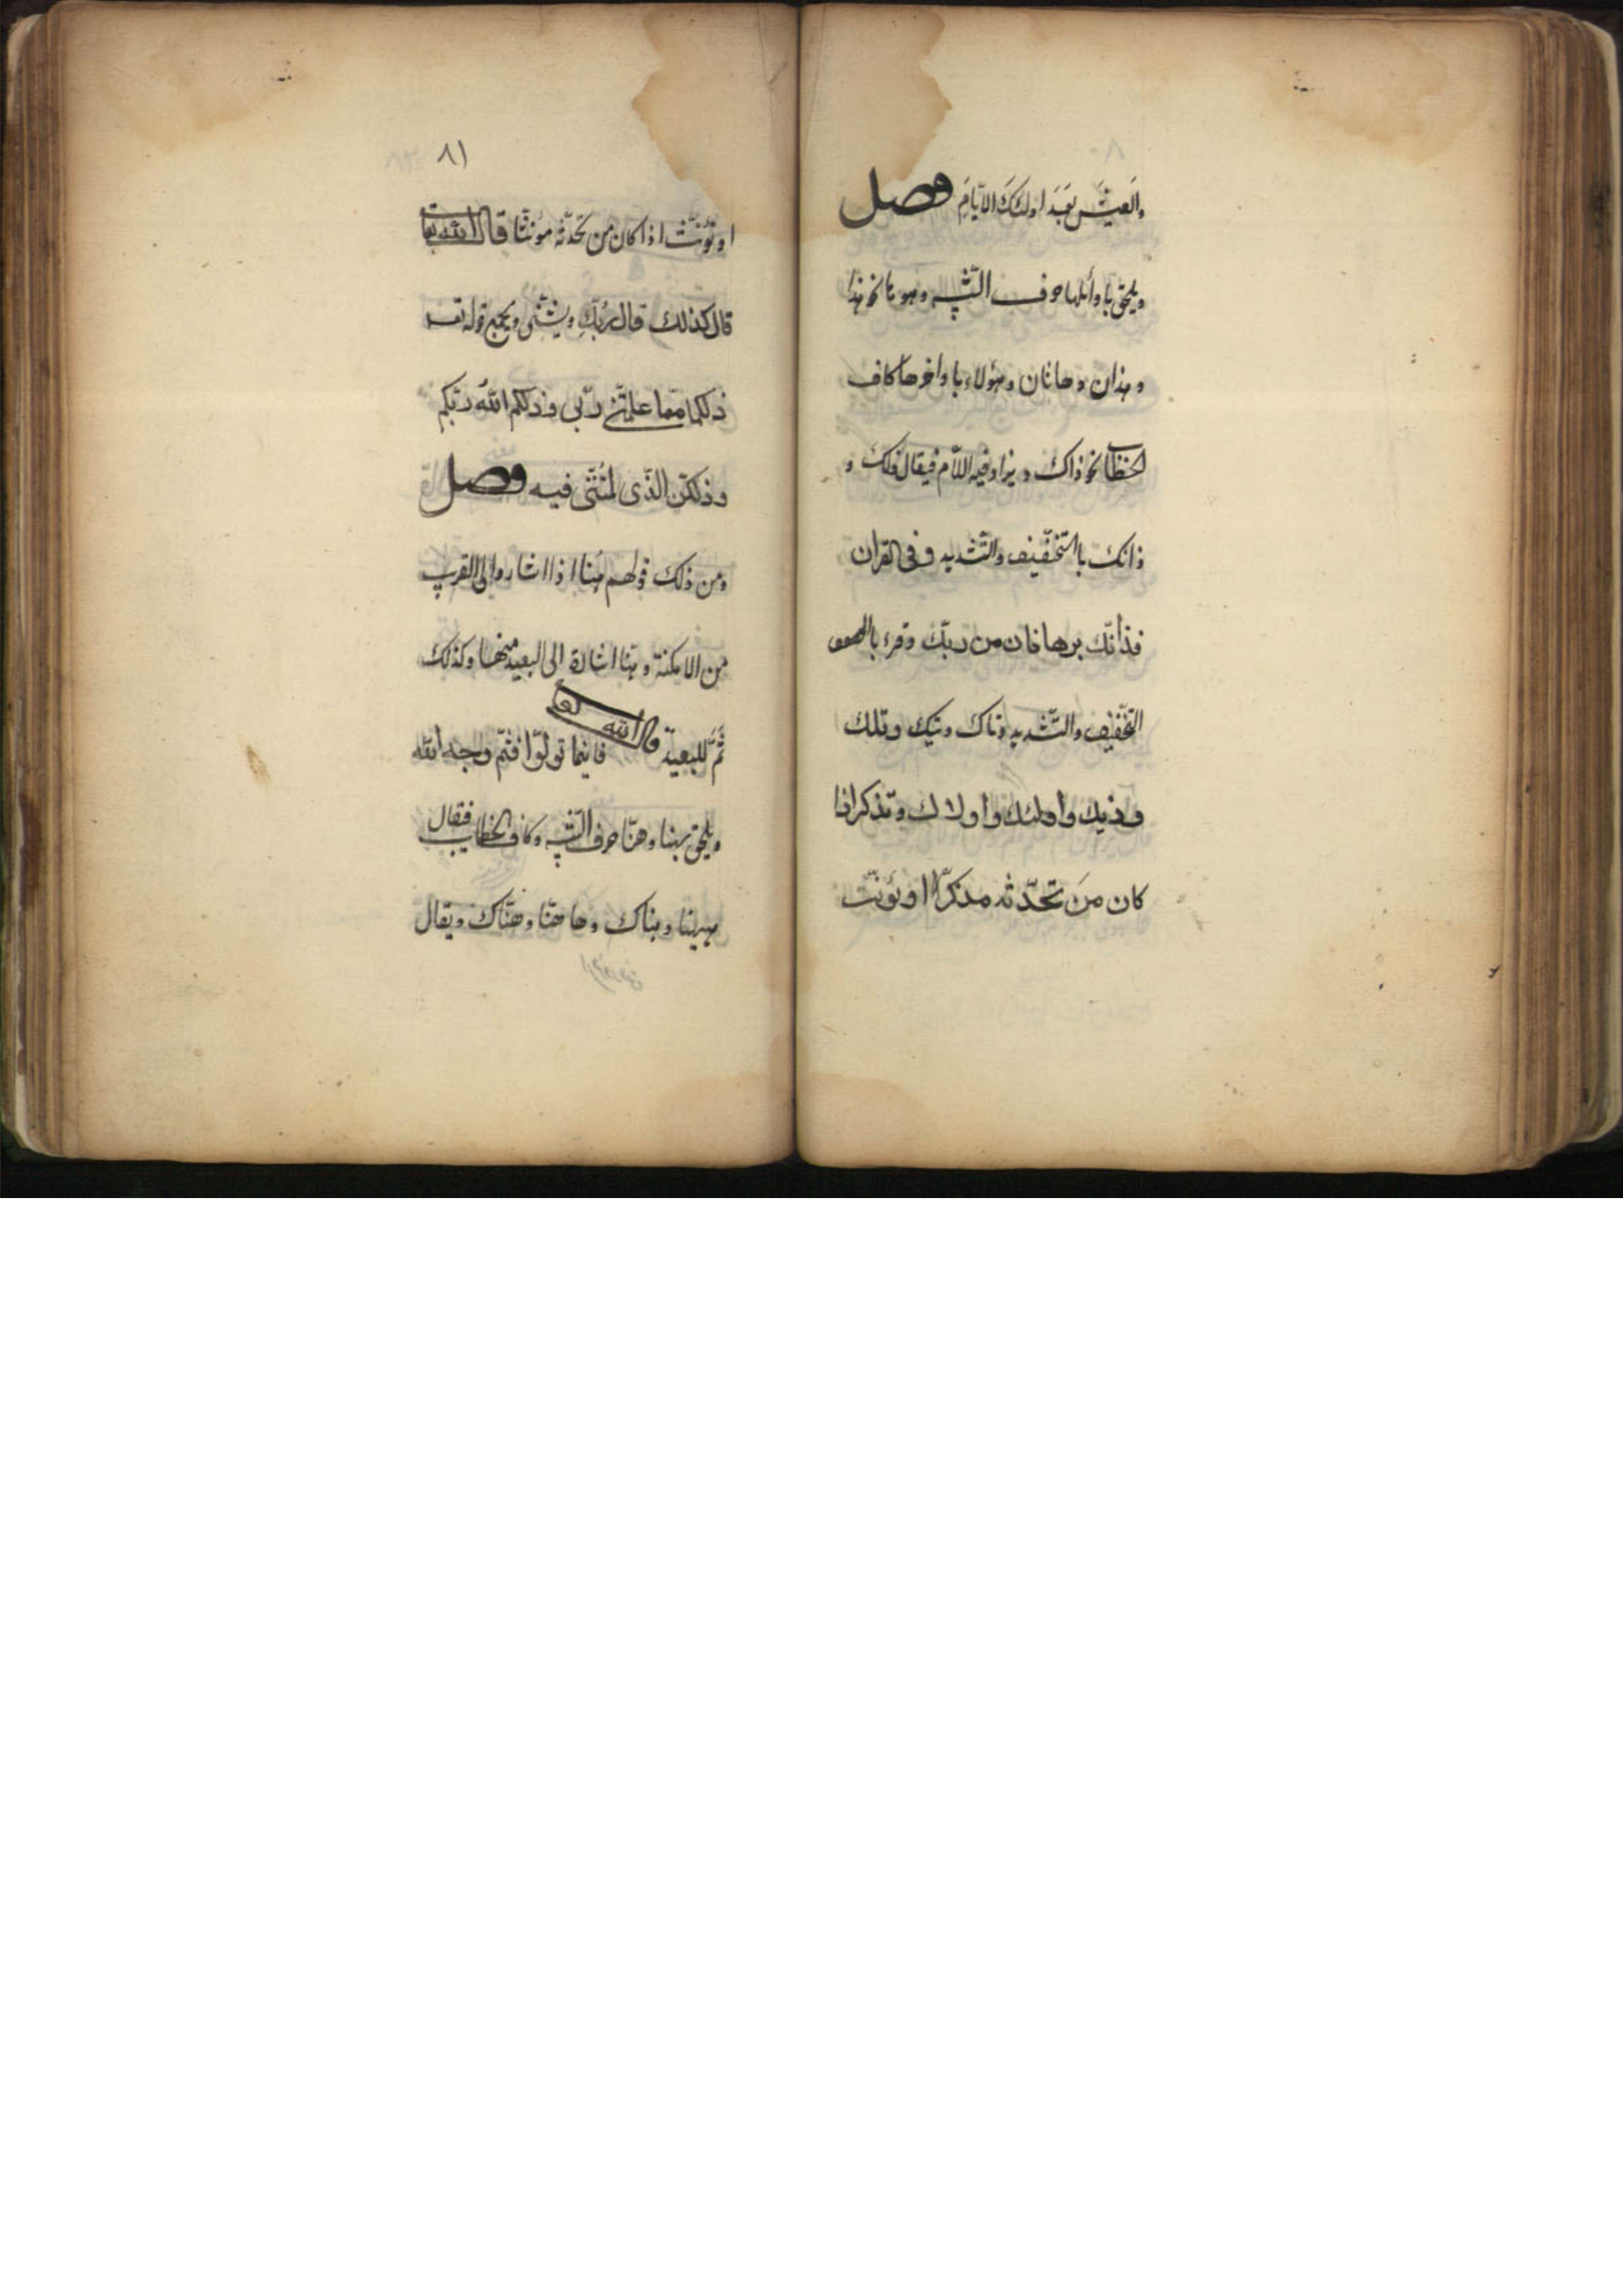 والعيش بعد اولئك الايّام فصل
ويلحق باوائلها حرف التّنبيه وهو ها نحو هذا
وهذان وهاتان وهؤلاء باواخرها كاف
الخطاب نحو ذاك ويزاد فيه اللّام فيقال ذلك و
ذانك بالتّخفيف والتّشديد وفى القران
فذانّك برهانان من ربّك وقرء با
التّخفيف والتّشديد وتاك وتيك وتلك
وذيك واولئك واولاك وتذكر اذا
كان من تحدّثه مذكرّا او يؤنّث
٨١
او تؤنّث اذا كان من تحدّثه مؤنثّا قال الله تعالى
قال كذلك قال ربّكِ ويثنّى ويجمع قوله تعـ
ذلكما ممّا علمّنى ربّى وذلكم الله ربّكم
وذلكنّ الّذى لمتنّى فيه فصل
ومن ذلك قولهم هُنا اذا اشاروا الى القريب
من الامكنة وهنّا اشارة الى البعيد منها وكذلك
ثَمَّ للبعيد قال الله تعـ فاينما تولّوا فثمّ وجه الله
ويلحق بهنا وهنّا حرف التّنبيه وكاف الخطاب فقال
هيهنا وهناك وها هنّا وهنّاك ويقال